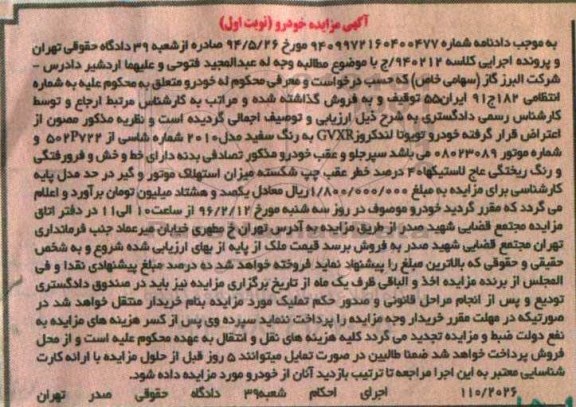 آگهی مزایده خودرو (نوبت اول)
به موجب دادنامه شماره ۹۴۰۹۹۷۲۱۶۰۴۰۰۴۷۷ مورخ ۹۴/۵/۲۶ صادره ازشعبه ۳۹ دادگاه حقوقی تهران
و پرونده اجرایی کلاسه ۹۴۰۲۱۲/ج با موضوع مطالبه وجه له عبدالمجید فتوحی و علیهما اردشیر دادرس -
شرکت البرز گاز (سهامی خاص) که حسب درخواست و معرفی محکوم له خودرو متعلق به محکوم علیه به شماره
انتظامی ۱۸۲ج۹۱ ایران۵۵ توقیف و به فروش گذاشته شده و مراتب به کارشناس مرتبط ارجاع و توسط
کارشناس رسمی دادگستری به شرح ذیل ارزیابی و توصیف اجمالی گردیده است و نظریه مذکور مصون از
اعتراض قرار گرفته خودرو تویوتا لندکروزGVXR به رنگ سفید مدل۲۰۱۰ شماره شاسی از ۵۰۲P۷۲۲ و
شماره موتور ۰۸۰۲۳۰۸۹ می باشد سپرجلو و عقب خودرو مذکور تصادفی بدنه دارای خط و خش و فرورفتگی
و رنگ ریختگی عاج لاستیکها۴۰ درصد خطر عقب چپ شکسته میزان استهلاک موتور و گیر در حد مدل پایه
کارشناسی برای مزایده به مبلغ ۱/۸۰۰/۰۰۰/۰۰۰ریال معادل یکصد و هشتاد میلیون تومان برآورد و اعلام
می گردد که مقرر گردید خودرو موصوف در روز سه شنبه مورخ ۹۶/۲/۱۲ از ساعت۱۰ الی۱۱ در دفتر اتاق
مزایده مجتمع قضایی شهید صدر از طریق مزایده به آدرس تهران خ مطهری خیابان میرعماد جنب فرمانداری
تهران مجتمع قضایی شهید صدر به فروش برسد قیمت ملک از پایه از بهای ارزیابی شده شروع و به شخص
حقیقی و حقوقی که بالاترین مبلغ را پیشنهاد نماید فروخته خواهد شد ده درصد مبلغ پیشنهادی نقدا و فی
المجلس از برنده مزایده اخذ و الباقی ظرف یک ماه از تاریخ برگزاری مزایده نیز باید در صندوق دادگستری
تودیع و پس از انجام مراحل قانونی و صدور حکم تملیک مورد مزایده بنام خریدار منتقل خواهد شد در
صورتیکه در مهلت مقرر خریدار وجه مزایده را پرداخت ننماید سپرده وی پس از کسر هزینه های مزایده به
نفع دولت ضبط و مزایده تجدید می گردد کلیه هزینه های نقل و انتقال به عهده محکوم علیه است و از محل
فروش پرداخت خواهد شد ضمنا طالبین در صورت تمایل میتوانند ۵ روز قبل از حلول مزایده با ارائه کارت
شناسایی معتبر به این اجرا مراجعه تا ترتیب بازدید آنان از خودرو مورد مزایده داده شود.
۱۱۰/۲۰۲۶ اجرای احکام شعبه۳۹ دادگاه حقوقی صدر تهران